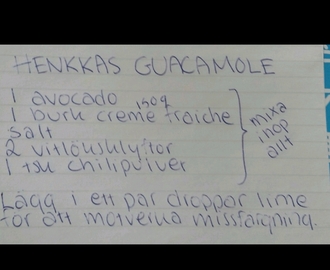 HENKKAS GUACAMOLE
1 avocado
1 burk creme fraiche
salt
2 vitlöksklyftor
1 tsk chilipulver
mixa
ihop
allt
Lägg i ett par droppar lime
för att motverka missfärgning.